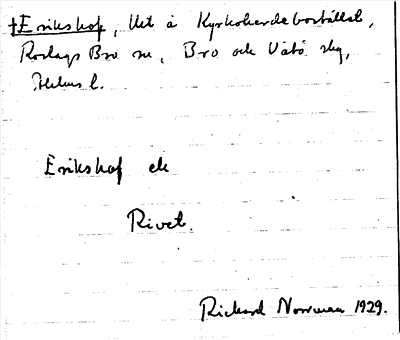 †Erikshof, lht å Kyrkoherdebostället,
Roslags Bro sn, Bro och Vätö skg,
Sthlms l.
Erikshof ek
Rivet.
Richard Norrman 1929.